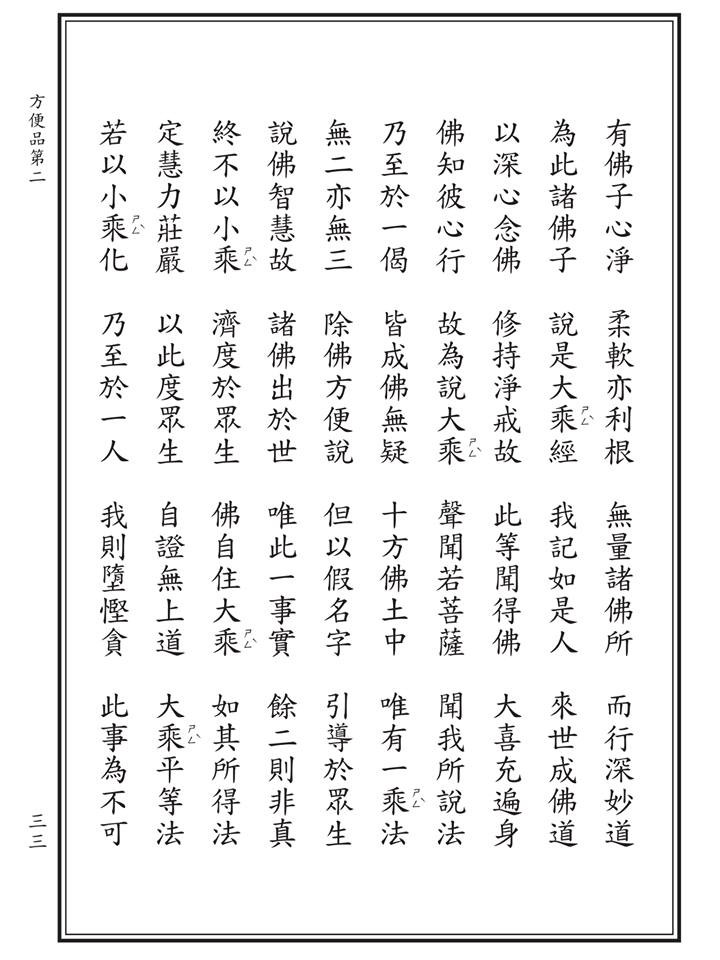 有佛子心淨　柔軟亦利根　無量諸佛所　而行深妙道
為此諸佛子　說是大乘ㄕㄥˋ經　我記如是人　來世成佛道
以深心念佛　修持淨戒故　此等聞得佛　大喜充遍身
佛知彼心行　故為說大乘ㄕㄥˋ　聲聞若菩薩　聞我所說法
乃至於一偈　皆成佛無疑　十方佛土中　唯有一乘ㄕㄥˋ法
無二亦無三　除佛方便說　但以假名字　引導於眾生
說佛智慧故　諸佛出於世　唯此一事實　餘二則非真
終不以小乘ㄕㄥˋ　濟度於眾生　佛自住大乘ㄕㄥˋ　如其所得法
定慧力莊嚴　以此度眾生　自證無上道　大乘ㄕㄥˋ平等法
若以小乘ㄕㄥˋ化　乃至於一人　我則墮慳貪　此事為不可
方便品第二
三三